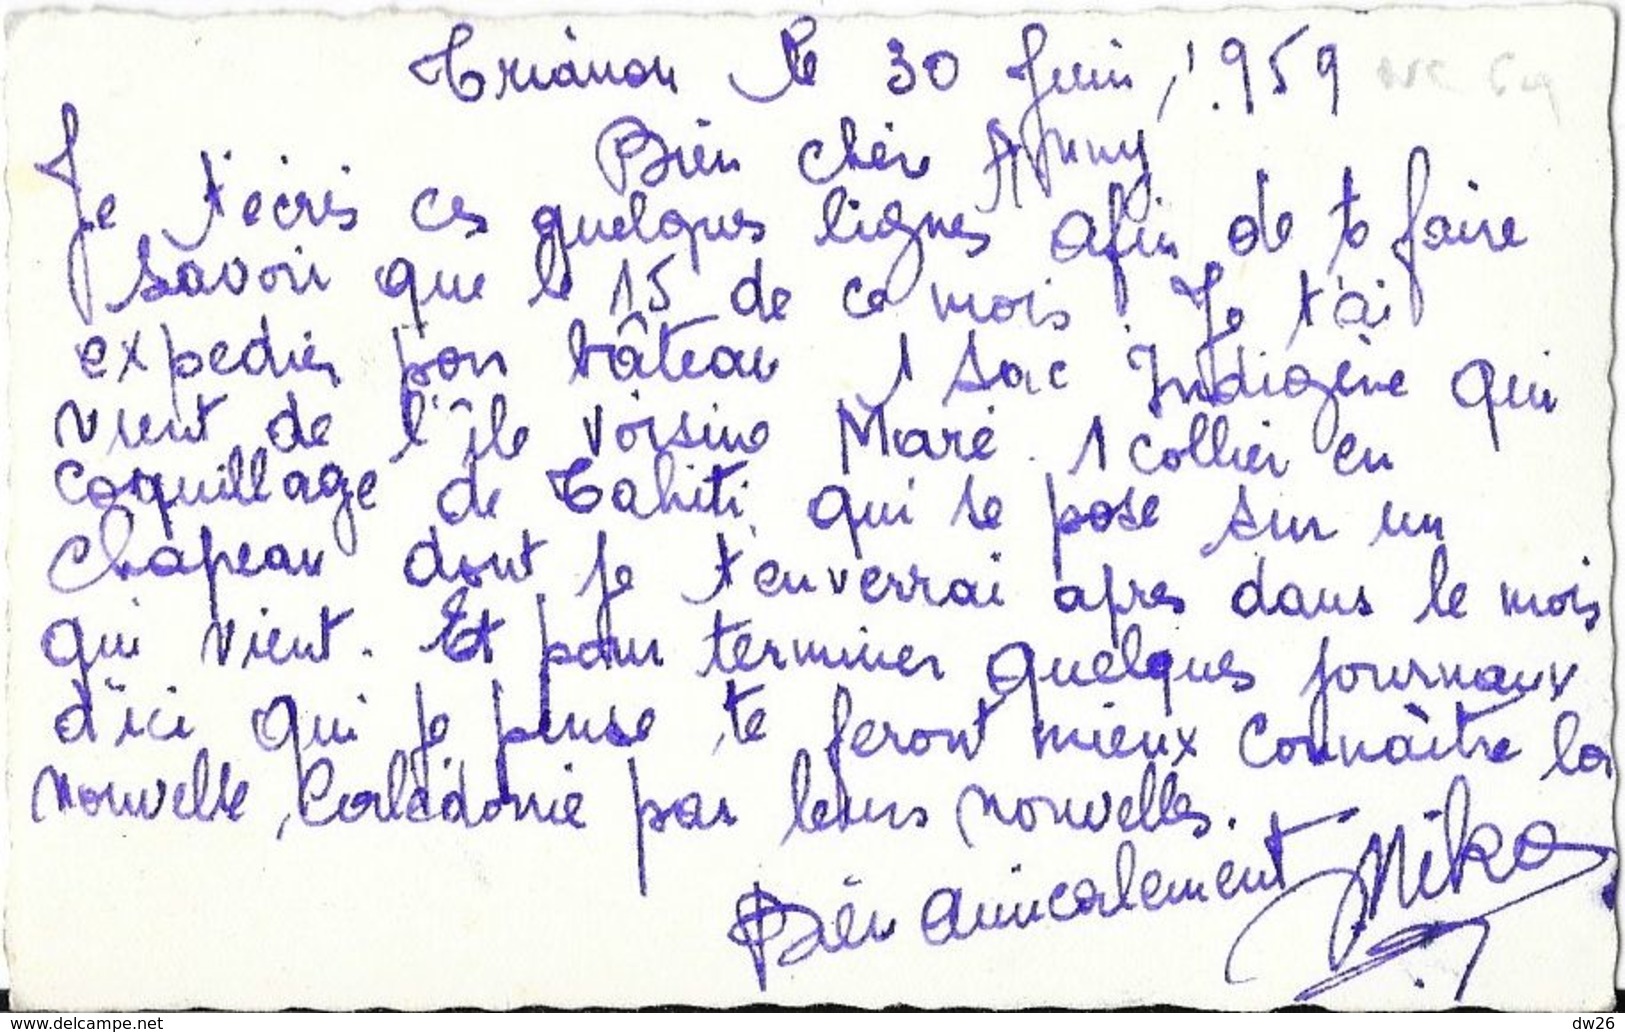 Trianon le 30 Juin, 1.959
Bien cher
Je t'écris ces quelques lignes afin de te faire
savoir que le 15 de ce mois Je t'ai
expedier par bâteau 1 sac Indigène qui
vient de l'île voisine Maré. 1 collier en
coquillage de Tahiti qui se pose sur un
chapeau dont je t'enverrai apres dans le mois
qui vient. Et pour terminer quelques journaux
d'ici qui je pense te feront mieux connaître la
nouvelle Calédonie par leurs nouvelles.
Bien amicalement Niko
www.delcampe.net
dw26